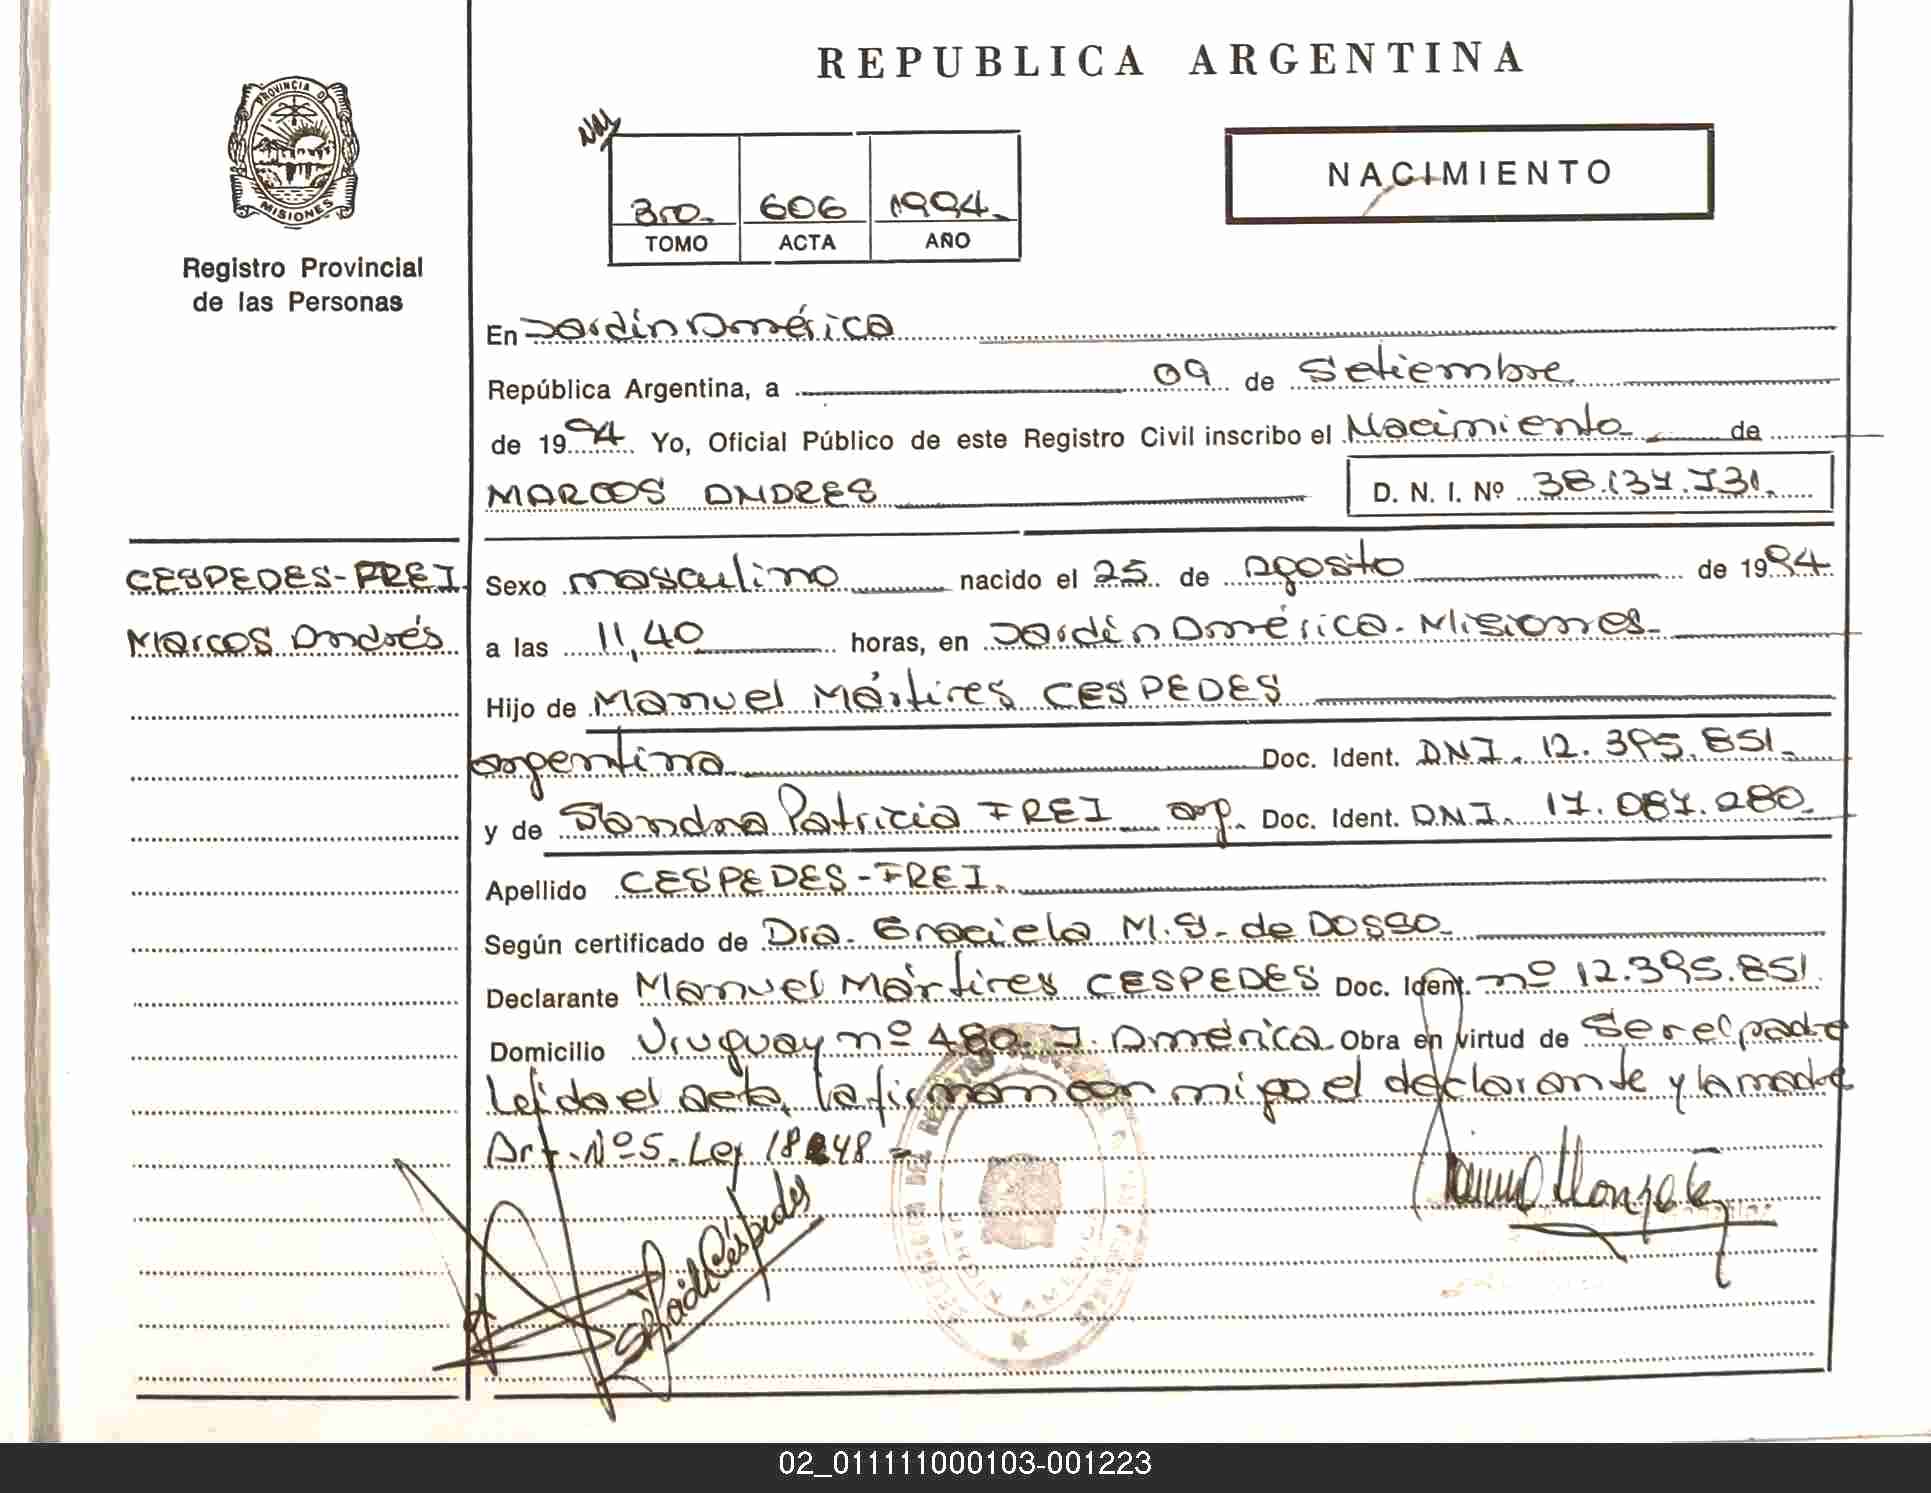 REPUBLICA ARGENTINA
PROVINCIA DE
MISIONES
Registro Provincial
de las Personas
3ro. 606 1994.
TOMO ACTA AÑO
NACIMIENTO
En Jardín América
República Argentina, a 09 de Setiembre
de 1994 Yo, Oficial Público de este Registro Civil inscribo el Nacimiento de
MARCOS ANDRES
D. N. I. Nº 38.137.731.
CESPEDES-FREI
Marcos Andrés
Sexo masculino nacido el 25 de agosto de 1994
a las 11,40 horas, en Jardín América. Misiones
Hijo de Manuel Mártires CESPEDES
argentino Doc. Ident. DNI. 12.395.851.
y de Sandra Patricia FREI arg. Doc. Ident. DNI. 17.087.280.
Apellido CESPEDES-FREI.
Según certificado de Dra. Graciela M.S. de DOSSO
Declarante Manuel Mártires CESPEDES Doc. Ident. nº 12.395.851.
Domicilio Uruguay nº 480. J. América Obra en virtud de Ser el padre
Leída el acta, la firman conmigo el declarante y la madre
Art. Nº 5. Ley 18248
Céspedes
JARDIN AMERICA
02_011111000103-001223